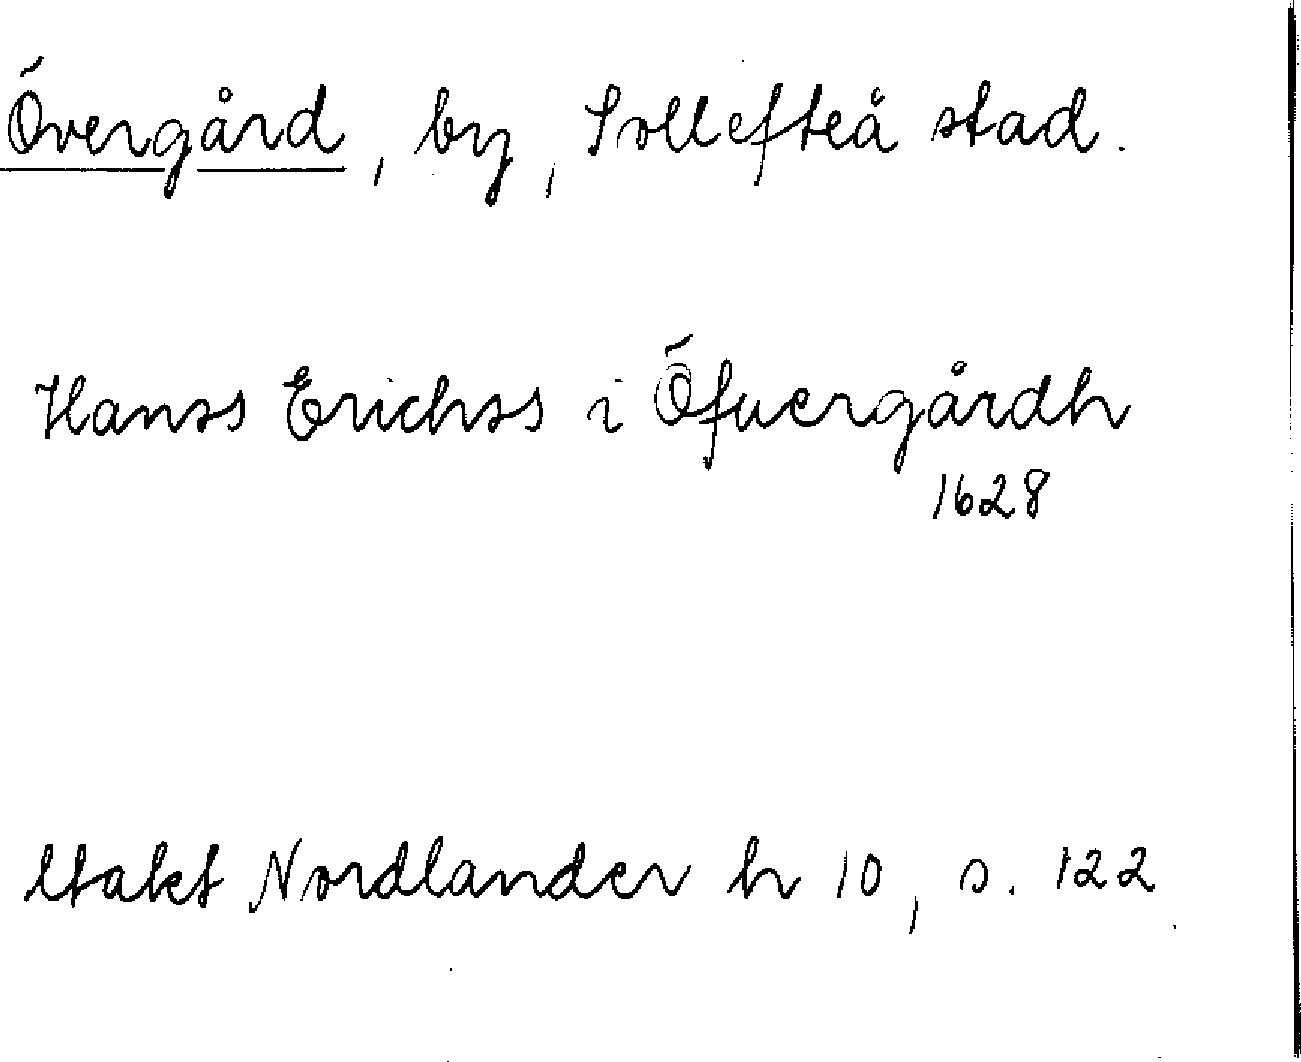 Övergård, by, Sollefteå stad.
Hanss Erichss i Öfuergårdh
1628
Utakt Nordlander h 10, s. 122